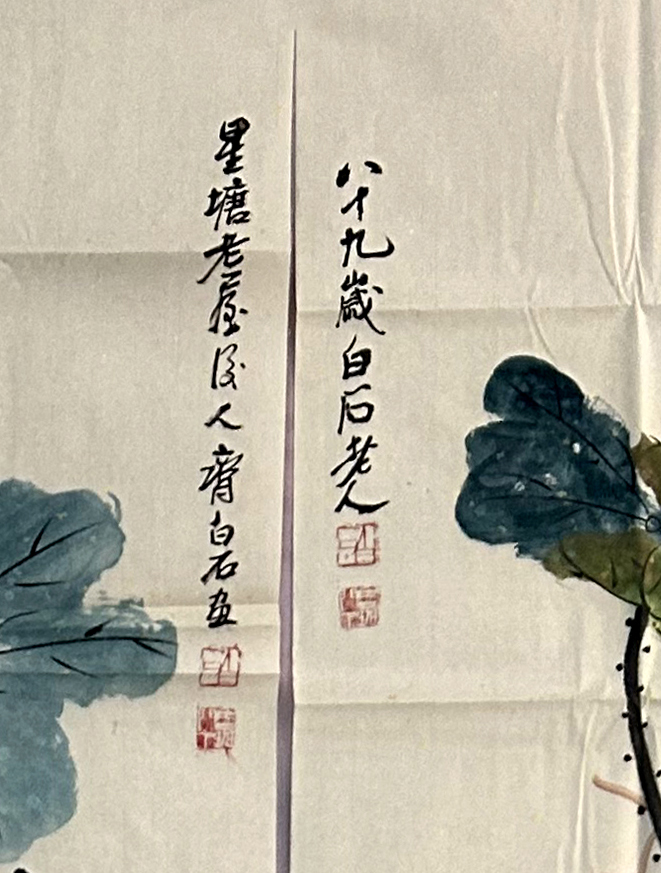 八十九歲白石老人
星塘老屋後人齊白石畫